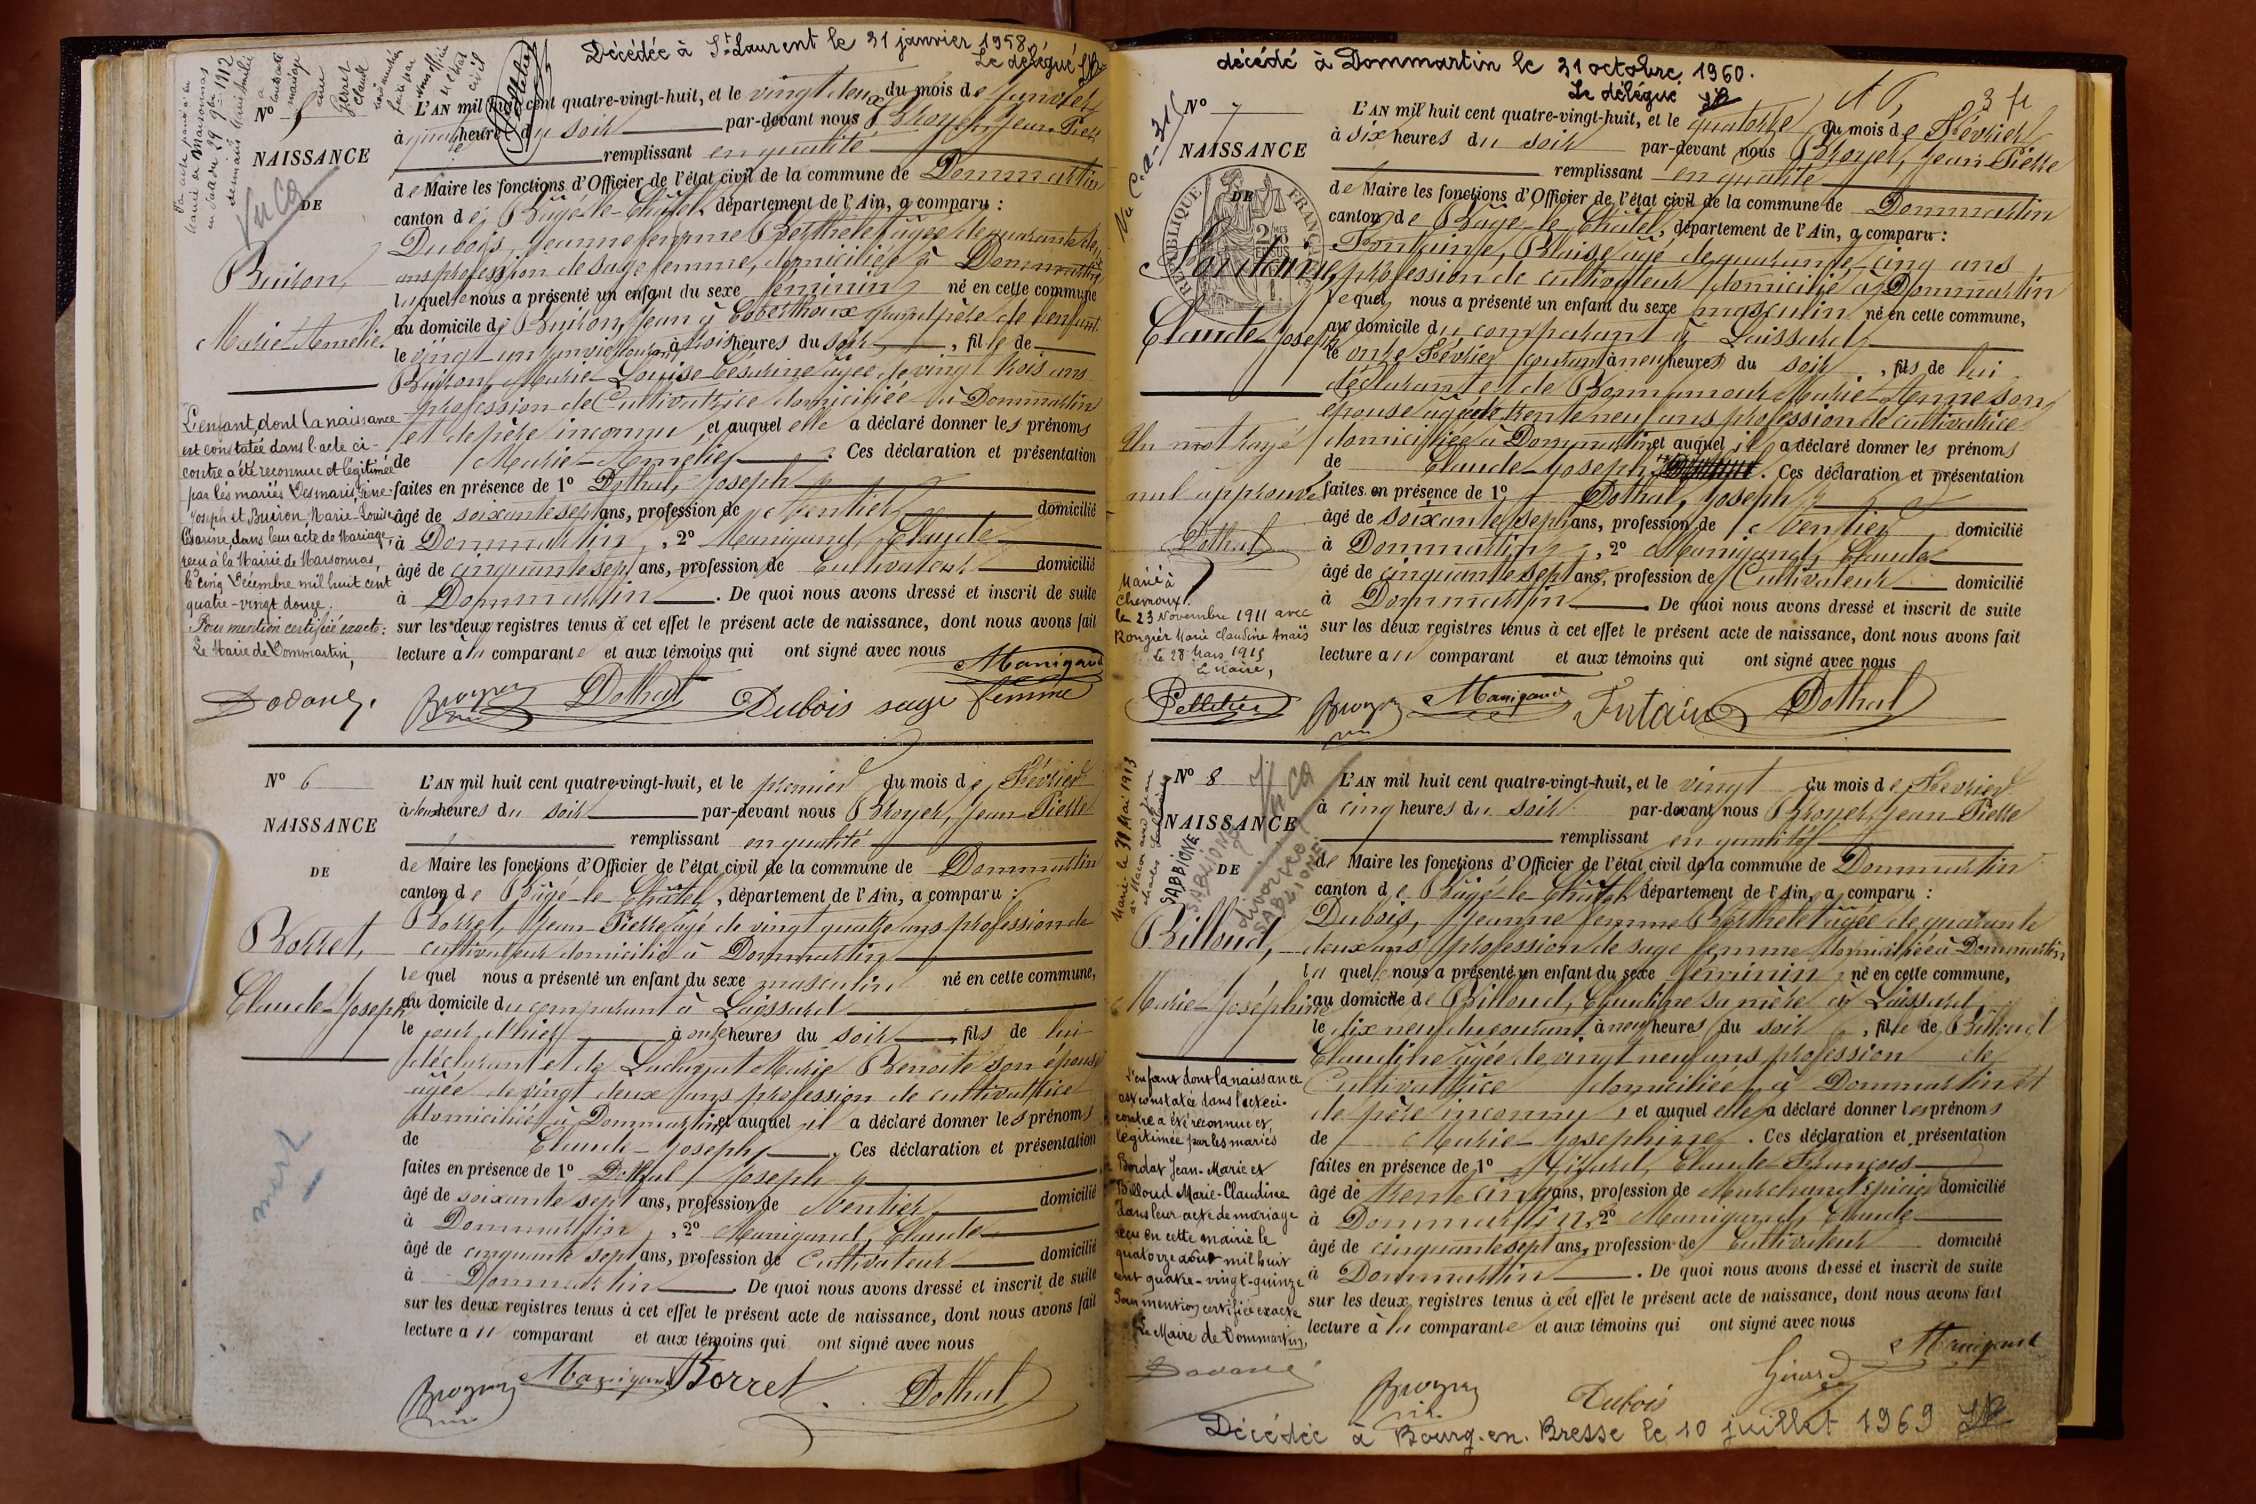 Décédée à St Laurent le 31 janvier 1958
Le délégué
Nº 5
L'AN mil huit cent quatre-vingt-huit, et le vingt deux du mois de Janvier
à quatre heures du soir par-devant nous Broyer, Jean-Pierre
NAISSANCE
remplissant en qualité
DE
de Maire les fonctions d'Officier de l'état civil de la commune de Dommartin
canton de Bâgé-le-Châtel, département de l'Ain, a comparu :
Dubois, Jeanne femme Berthelet âgée de quarante deux
Buiron,
ans profession de sage femme, domiciliée à Dommartin
laquelle nous a présenté un enfant du sexe féminin né en cette commune
Marie-Amélie
au domicile de Buiron, Jean à grand père de l'enfant
le vingt-un Janvier courant à trois heures du soir, fille de
Buiron, Marie-Louise-Césarine âgée de vingt trois ans
profession de Cultivatrice domiciliée à Dommartin
et de père inconnu, et auquel elle a déclaré donner les prénoms
de Marie-Amélie. Ces déclaration et présentation
faites en présence de 1º Dothal, Joseph
âgé de soixante sept ans, profession de Rentier domicilié
à Dommartin, 2º Manigand, Claude
âgé de cinquante sept ans, profession de Cultivateur domicilié
à Dommartin. De quoi nous avons dressé et inscrit de suite
sur les deux registres tenus à cet effet le présent acte de naissance, dont nous avons fait
lecture a la comparante et aux témoins qui ont signé avec nous
L'enfant, dont la naissance
est constatée dans l'acte ci-
contre a été reconnue et légitimée
par les mariés Desmaris, Guie-
Joseph et Buiron, Marie-Louise
Césarine, dans leur acte de Mariage,
reçu à la Mairie de Marsonnas,
le cinq Décembre mil huit cent
quatre-vingt douze.
Pour mention certifiée exacte :
Le Maire de Dommartin,
Manigand
Broyer Dothal Dubois sage femme
Nº 6
L'AN mil huit cent quatre-vingt-huit, et le premier du mois de Février
à deux heures du soir par-devant nous Broyer, Jean Pierre
NAISSANCE
remplissant en qualité
DE
de Maire les fonctions d'Officier de l'état civil de la commune de Dommartin
canton de Bâgé-le-Châtel, département de l'Ain, a comparu :
Borret, Jean-Pierre âgé de vingt quatre ans profession de
Borret,
cultivateur domicilié à Dommartin
lequel nous a présenté un enfant du sexe masculin né en cette commune,
Claude-Joseph
au domicile du comparant à Loissard
le jour d'hier à onze heures du soir, fils de lui
déclarant et de Marie Benoite son épouse
âgée de vingt deux ans profession de cultivatrice
domiciliée à Dommartin et auquel il a déclaré donner les prénoms
de Claude-Joseph. Ces déclaration et présentation
faites en présence de 1º Dothal Joseph
âgé de soixante sept ans, profession de Rentier domicilié
à Dommartin, 2º Manigand, Claude
âgé de cinquante sept ans, profession de Cultivateur domicilié
à Dommartin. De quoi nous avons dressé et inscrit de suite
sur les deux registres tenus à cet effet le présent acte de naissance, dont nous avons fait
lecture au comparant et aux témoins qui ont signé avec nous
Broyer Manigand Borret Dothal
décédé à Dommartin le 31 octobre 1960.
Le délégué
Nº 7
L'AN mil huit cent quatre-vingt-huit, et le quatorze du mois de Février
à six heures du soir par-devant nous Broyer, Jean-Pierre
NAISSANCE
remplissant en qualité
DE
de Maire les fonctions d'Officier de l'état civil de la commune de Dommartin
canton de Bâgé-le-Châtel, département de l'Ain, a comparu :
RÉPUBLIQUE FRANÇAISE
Fontaine, Blaise âgé de quarante cinq ans
Fontaine,
profession de cultivateur domicilié à Dommartin
lequel nous a présenté un enfant du sexe masculin né en cette commune,
Claude-Joseph
au domicile du comparant à Loissard
le onze Février courant à neuf heures du soir, fils de lui
déclarant et de Marie-Anne son
épouse âgée de trente neuf ans profession de cultivatrice
domiciliée à Dommartin et auquel il a déclaré donner les prénoms
de Claude-Joseph. Ces déclaration et présentation
faites en présence de 1º Dothal, Joseph
âgé de soixante sept ans, profession de Rentier domicilié
à Dommartin, 2º Manigand, Claude
âgé de cinquante sept ans, profession de Cultivateur domicilié
à Dommartin. De quoi nous avons dressé et inscrit de suite
sur les deux registres tenus à cet effet le présent acte de naissance, dont nous avons fait
lecture au comparant et aux témoins qui ont signé avec nous
Un mot rayé
nul approuvé
Dothal
Marié à
Chevroux
le 23 Novembre 1911 avec
Rongier Marie Claudine Anaïs
Le 28 Mars 1915
Le Maire,
Pelletier Broyer Manigand Fontaine Dothal
Nº 8
L'AN mil huit cent quatre-vingt-huit, et le vingt du mois de Février
à cinq heures du soir par-devant nous Broyer, Jean-Pierre
NAISSANCE
remplissant en qualité
DE
SABBIONE
divorcée
SABBIONE
de Maire les fonctions d'Officier de l'état civil de la commune de Dommartin
canton de Bâgé-le-Châtel, département de l'Ain, a comparu :
Dubois, Jeanne femme Berthelet âgée de quarante
Billoud,
deux ans profession de sage femme domiciliée à Dommartin
laquelle nous a présenté un enfant du sexe féminin né en cette commune,
Marie-Joséphine
au domicile de Billoud, Claudine sa mère à Loissard
le dix neuf du courant à neuf heures du soir, fille de Billoud
Claudine âgée de vingt neuf ans profession de
Cultivatrice domiciliée à Dommartin et
de père inconnu, et auquel elle a déclaré donner les prénoms
de Marie-Joséphine. Ces déclaration et présentation
faites en présence de 1º Girard, Claude-François
âgé de trente cinq ans, profession de Marchand épicier domicilié
à Dommartin, 2º Manigand, Claude
âgé de cinquante sept ans, profession de Cultivateur domicilié
à Dommartin. De quoi nous avons dressé et inscrit de suite
sur les deux registres tenus à cet effet le présent acte de naissance, dont nous avons fait
lecture à la comparante et aux témoins qui ont signé avec nous
L'enfant dont la naissance
est constatée dans l'acte ci-
contre a été reconnue et
légitimée par les mariés
Bordat Jean-Marie et
Billoud Marie-Claudine
dans leur acte de mariage
reçu en cette mairie le
quatorze août mil huit
cent quatre-vingt-quinze
Pour mention certifiée exacte
Le Maire de Dommartin,
Broyer Dubois Girard Manigand
Décédée à Bourg-en-Bresse le 10 juillet 1969